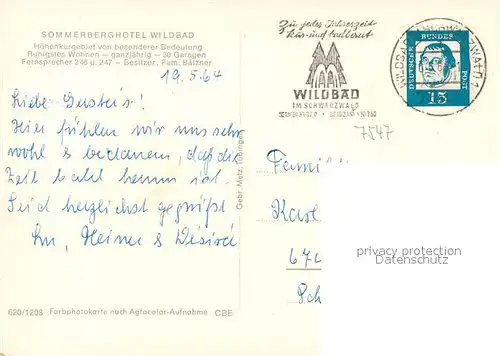 SOMMERBERGHOTEL WILDBAD
Höhenkurgebiet von besonderer Bedeutung
Ruhigstes Wohnen — ganzjährig — 30 Garagen
Fernsprecher 246 u. 247 — Besitzer: Fam. Bätzner
19.5.64
Liebe
Hier fühlen wir uns sehr
wohl & bedauern, daß die
Zeit bald herum ist.
Seid herzlichst gegrüßt
Heiner & Désirée
620/1208 Farbphotokarte nach Agfacolor-Aufnahme CBE
Gebr. Metz, Tübingen
Zu jeder Jahreszeit
kur- und badbereit
WILDBAD
IM SCHWARZWALD
DEUTSCHE BUNDESPOST
15
7547
Familie
privacy protection
Datenschutz